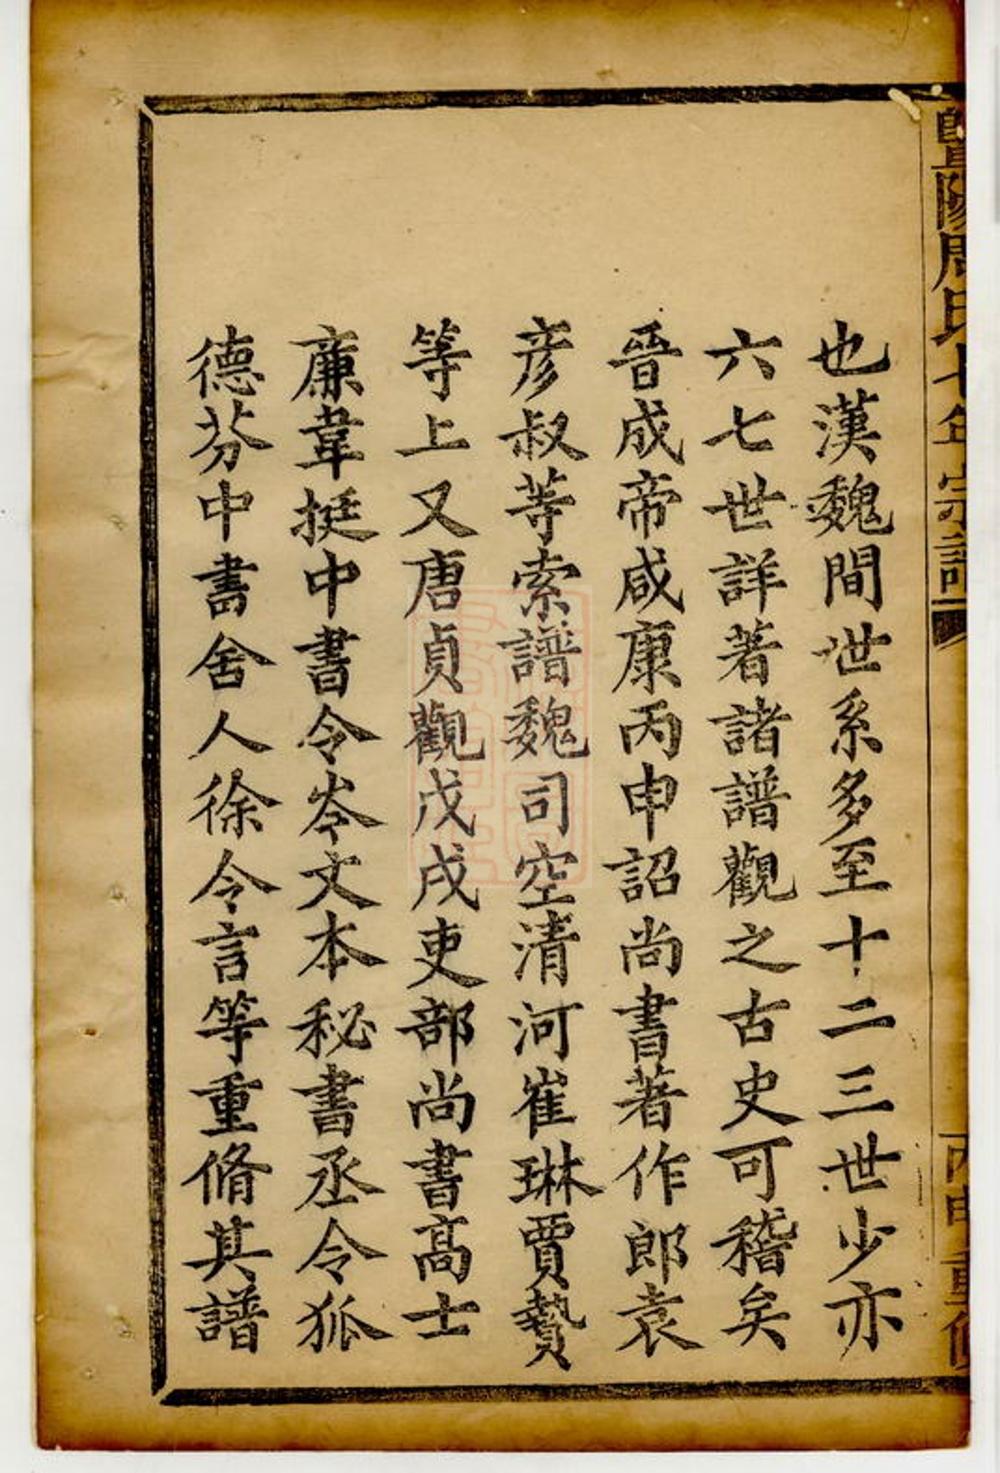 暨陽周氏七年宗譜
丙申重修
也漢魏間世系多至十二三世少亦
六七世詳著諸譜觀之古史可稽矣
晉成帝咸康丙申詔尚書著作郎袁
彦叔等索譜魏司空清河崔琳賈贄
等上又唐貞觀戊戌吏部尚書高士
廉韋挺中書令岑文本秘書丞令狐
德芬中書舍人徐令言等重脩其譜